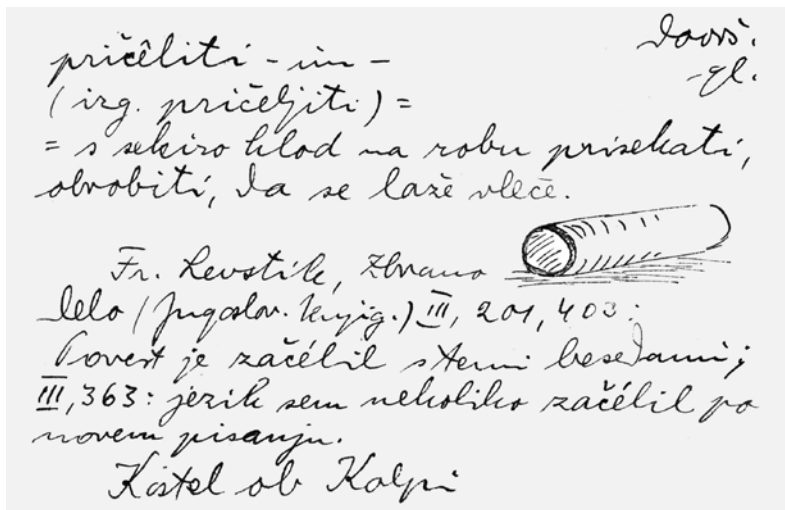 dovrš.
pričêliti - im -
-gl.
(izg. pričeljiti) =
= s sekiro hlod na robu prisekati,
obrobiti, da se laže vleče.
Fr. Levstik, Zbrano
delo (Jugoslov. knjig.) III, 201, 403:
Povest je začélil s temi besedami;
III, 363: jezik sem nekoliko začélil po
novem pisanju.
Kostel ob Kolpi